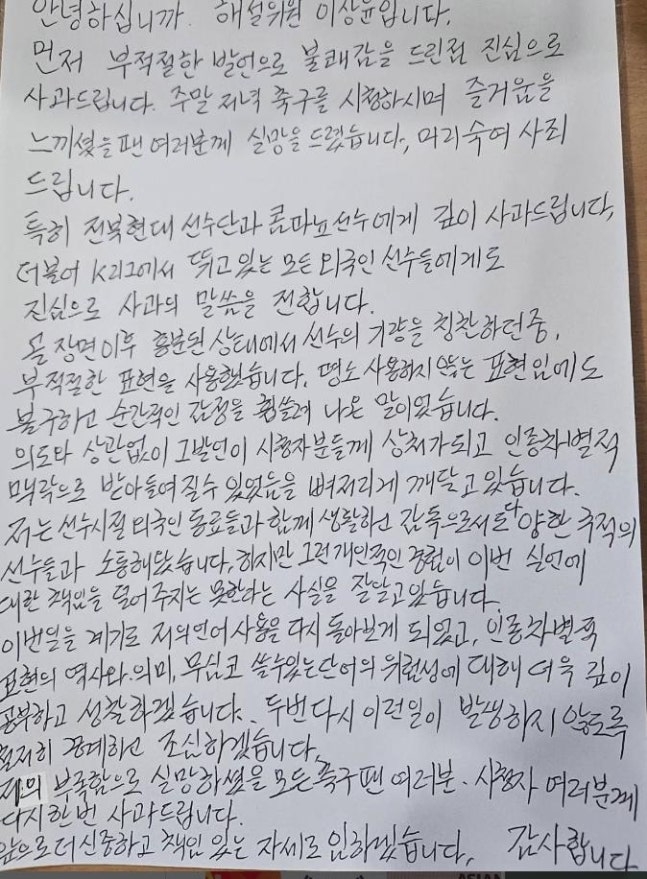 안녕하십니까. 해설위원 이상윤입니다.
먼저 부적절한 발언으로 불쾌감을 드린점 진심으로
사과드립니다. 주말 저녁 축구를 시청하시며 즐거움을
느끼셨을 팬 여러분께 실망을 드렸습니다, 머리숙여 사죄
드립니다.
특히 전북현대 선수단과 콤파뇨선수에게 깊이 사과드립니다,
더불어 K리그에서 뛰고있는 모든 외국인 선수들에게도
진심으로 사과의 말씀을 전합니다.
골 장면이후 흥분된 상태에서 선수의 기량을 칭찬하던중,
부적절한 표현을 사용했습니다. 평소 사용하지 않는 표현임에도
불구하고 순간적인 감정을 휩쓸려 나온 말이었습니다.
의도와 상관없이 그발언이 시청자분들께 상처가되고 인종차별적
맥락으로 받아들여질수 있었음을 뼈저리게 깨닫고있습니다.
저는 선수시절 외국인 동료들과 함께 생활하고 감독으로서도 다양한 국적의
선수들과 소통해왔습니다, 하지만 그런개인적인 경험이 이번 실언에
대한 책임을 덜어주지는 못한다는 사실을 잘알고있습니다.
이번일을 계기로 저의언어사용을 다시 돌아보게 되었고, 인종차별적
표현의 역사와.의미, 무심코 쓸수있는단어의 위험성에 대해 더욱 깊이
공부하고 성찰하겠습니다. 두번다시 이런일이 발생하지 않도록
철저히 경계하고 조심하겠습니다,
저의 부족함으로 실망하셨을 모든축구팬 여러분. 시청자 여러분께
다시한번 사과드립니다.
앞으로더신중하고 책임 있는 자세로 임하겠습니다, 감사합니다